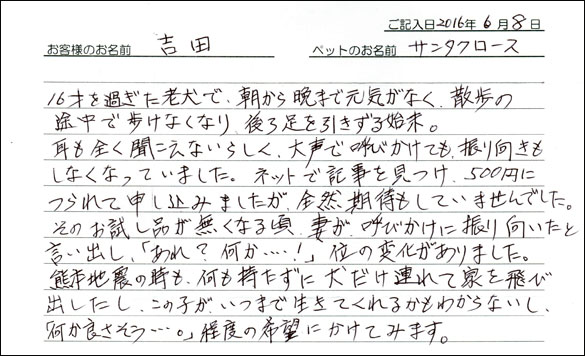 ご記入日2016年6月8日
お客様のお名前 吉田 ペットのお名前 サンタクロース
16才を過ぎた老犬で、朝から晩まで元気がなく、散歩の
途中で歩けなくなり、後ろ足を引きずる始末。
耳も全く聞こえないらしく、大声で呼びかけても、振り向きも
しなくなっていました。ネットで記事を見つけ、500円に
つられて申し込みましたが、全然期待もしていませんでした。
そのお試し品が無くなる頃、妻が、呼びかけに振り向いたと
言い出し、「あれ?何か‥‥!」位の変化がありました。
熊本地震の時も、何も持たずに犬だけ連れて家を飛び
出したし、この子が、いつまで生きてくれるかもわからないし、
「何か良さそう‥‥。」程度の希望にかけてみます。